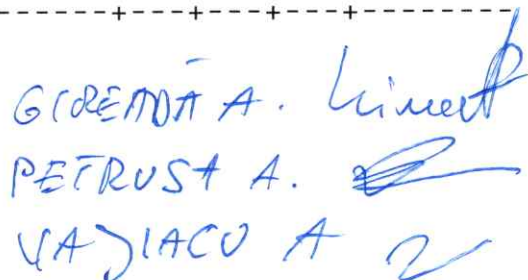 -----+---+---+---+------
GIREADĂ A.
PETRUSA A.
VAJIACU A